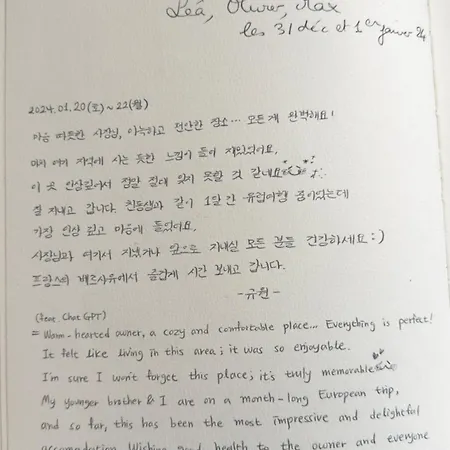 Léa, Oliver, Max
les 31 déc et 1er janvier 24
2024.01.20(토)~22(월)
마음 따뜻한 사장님, 아늑하고 편안한 장소... 모든게 완벽해요!
마치 여기 지역에 사는 듯한 느낌이 들어 재밌었어요.
이 곳 인상깊어서 정말 절대 잊지 못할 것 같네요
잘 지내고 갑니다. 친동생과 같이 1달간 유럽여행 중이었는데
가장 인상 깊고 마음에 들었어요.
사장님과 여기서 지냈거나 앞으로 지내실 모든 분들 건강하세요:)
프랑스의 베즈사유에서 즐겁게 시간 보내고 갑니다.
-규원-
(feat. Chat GPT)
= Warm-hearted owner, a cozy and comfortable place... Everything is perfect!
It felt like living in this area; it was so enjoyable.
I'm sure I won't forget this place; it's truly memorable
My younger brother & I are on a month-long European trip,
and so far, this has been the most impressive and delightful
accomodation. Wishing good health to the owner and everyone